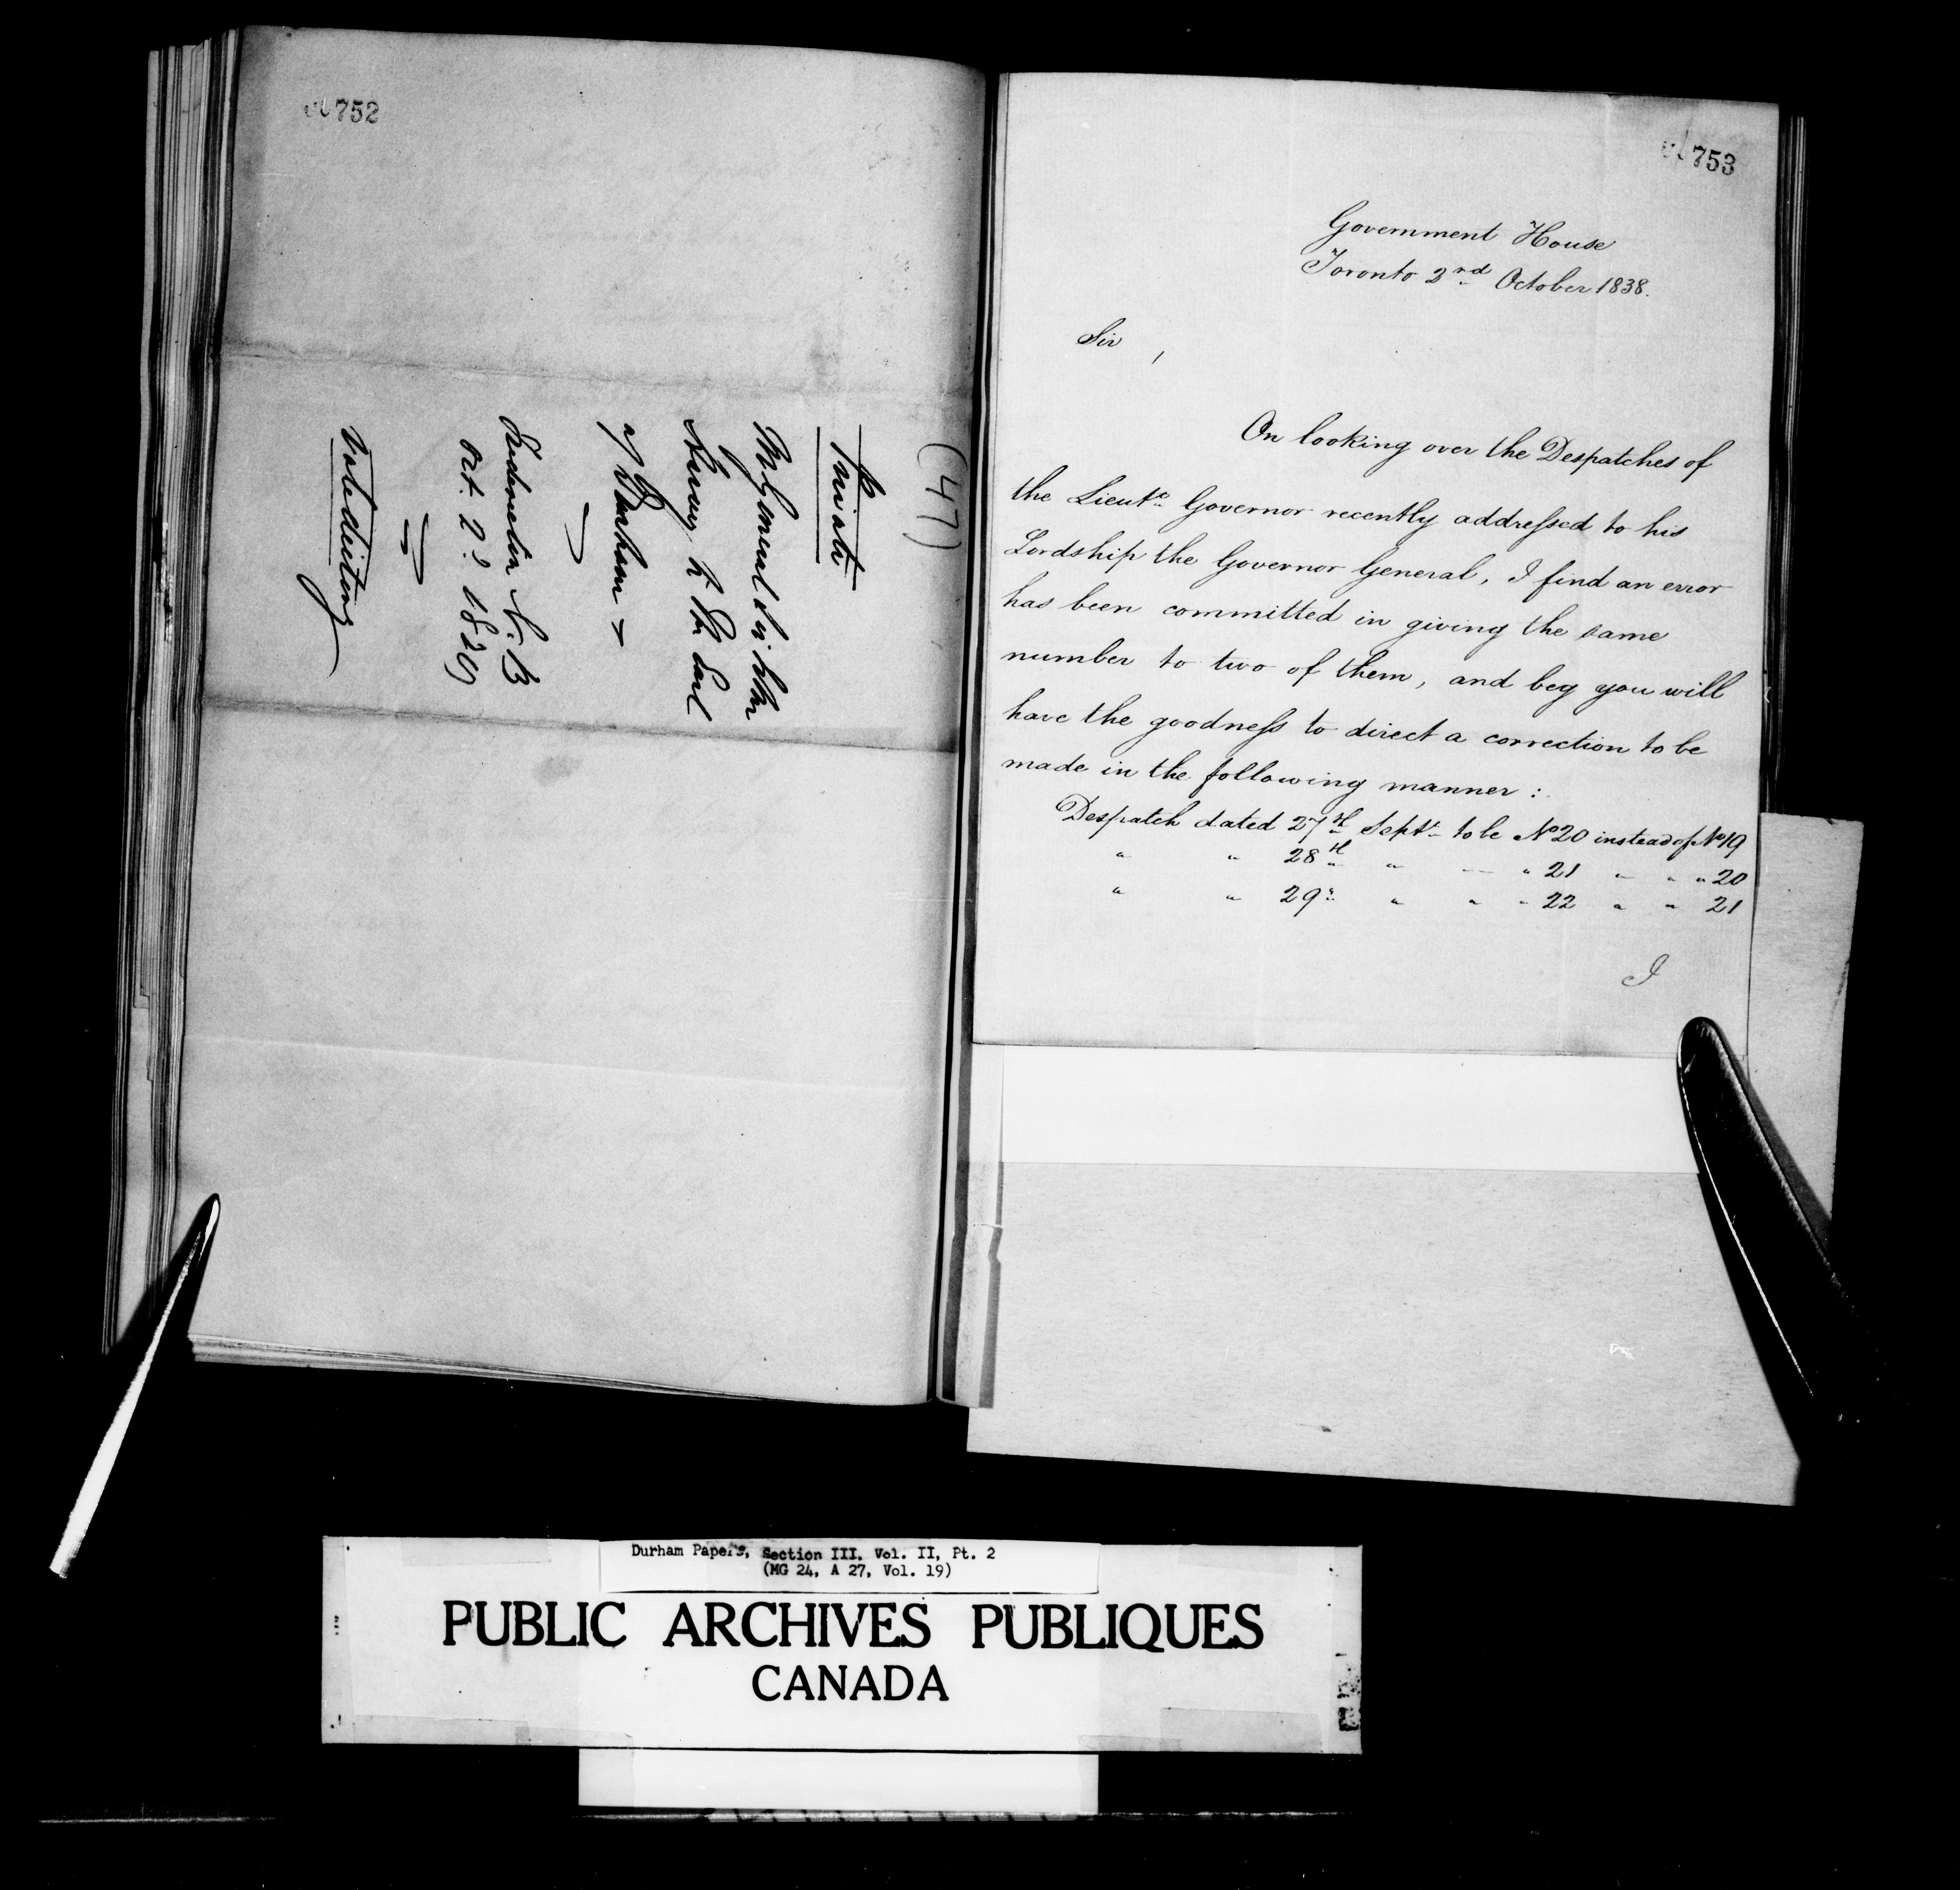 752
(47)
Private
Maj General Sir John
Harvey to The Earl
of Durham
Fredericton N. B.
Oct. 2d 1838
Valedictory
753
Government House
Toronto 2rd October 1838.
Sir,
On looking over the Despatches of
the Lieut. Governor recently addressed to his
Lordship the Governor General, I find an error
has been committed in giving the same
number to two of them, and beg you will
have the goodness to direct a correction to be
made in the following manner :
Despatch dated 27th Sept. to be No 20 instead of No 19
" " 28th " " " 21 " " " 20
" " 29" " " " 22 " " 21
I
Durham Papers, Section III. Vol. II, Pt. 2
(MG 24, A 27, Vol. 19)
PUBLIC ARCHIVES PUBLIQUES
CANADA